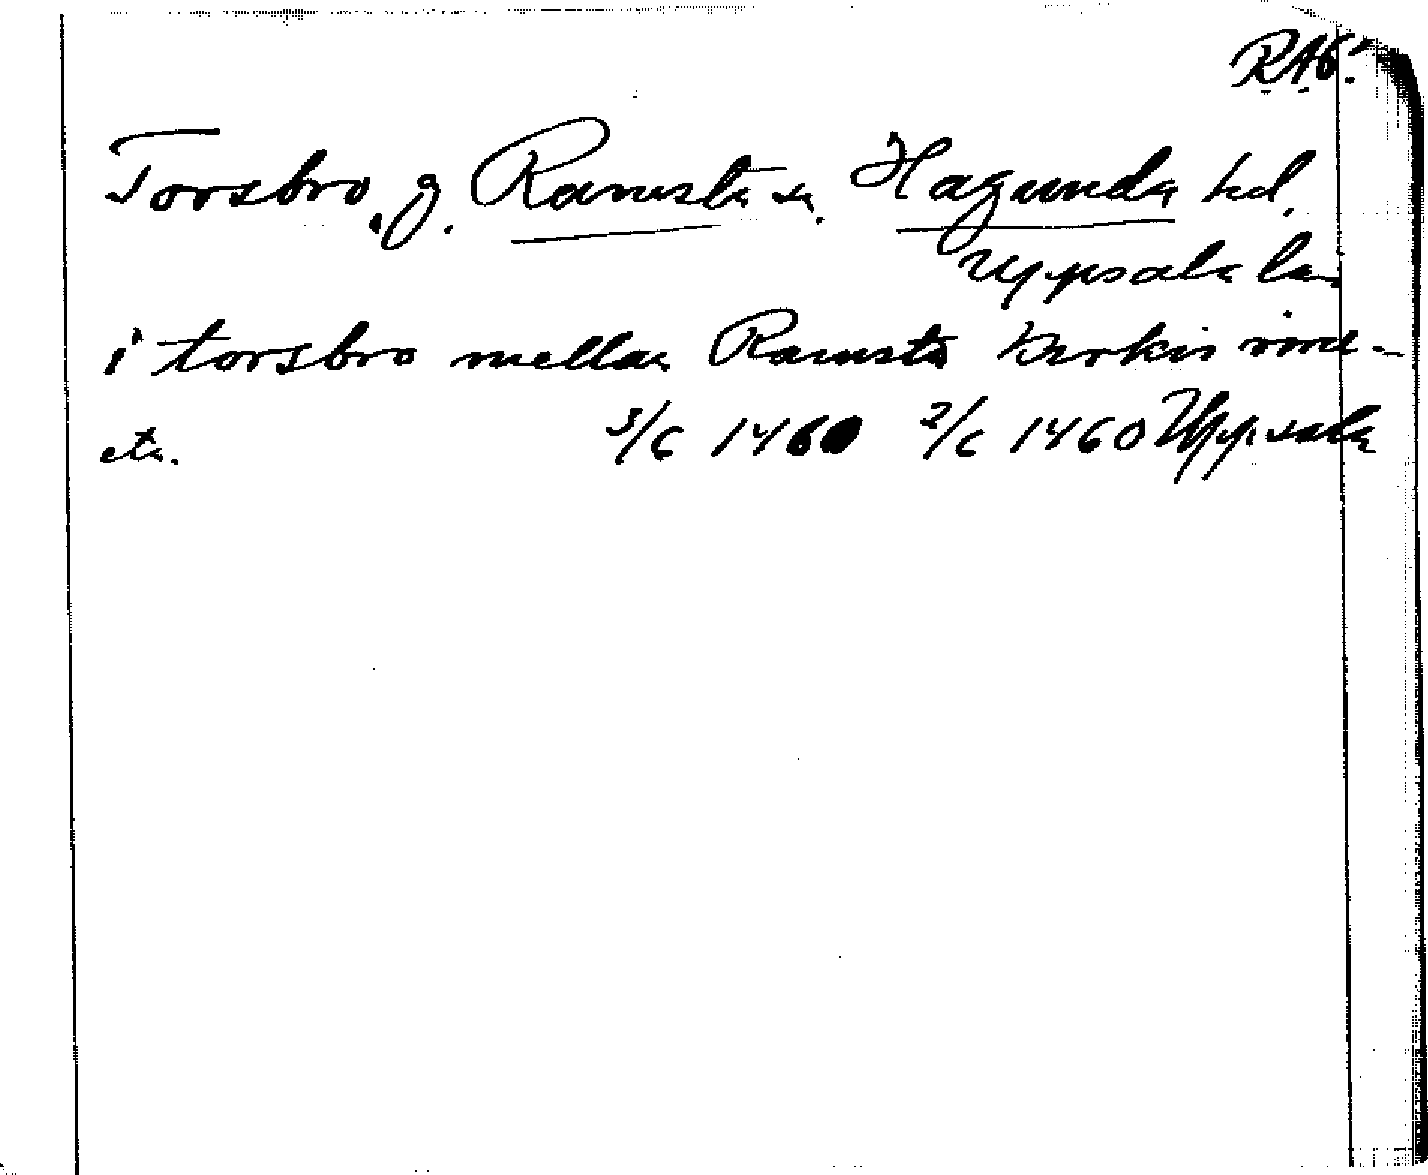 RAб.
Torsbro, g. Ramsta sn. Hagunda hd.
Uppsala län
i torsbro mellan Ramsta kirkio
etc. 3/6 1460 2/6 1460 Uppsala